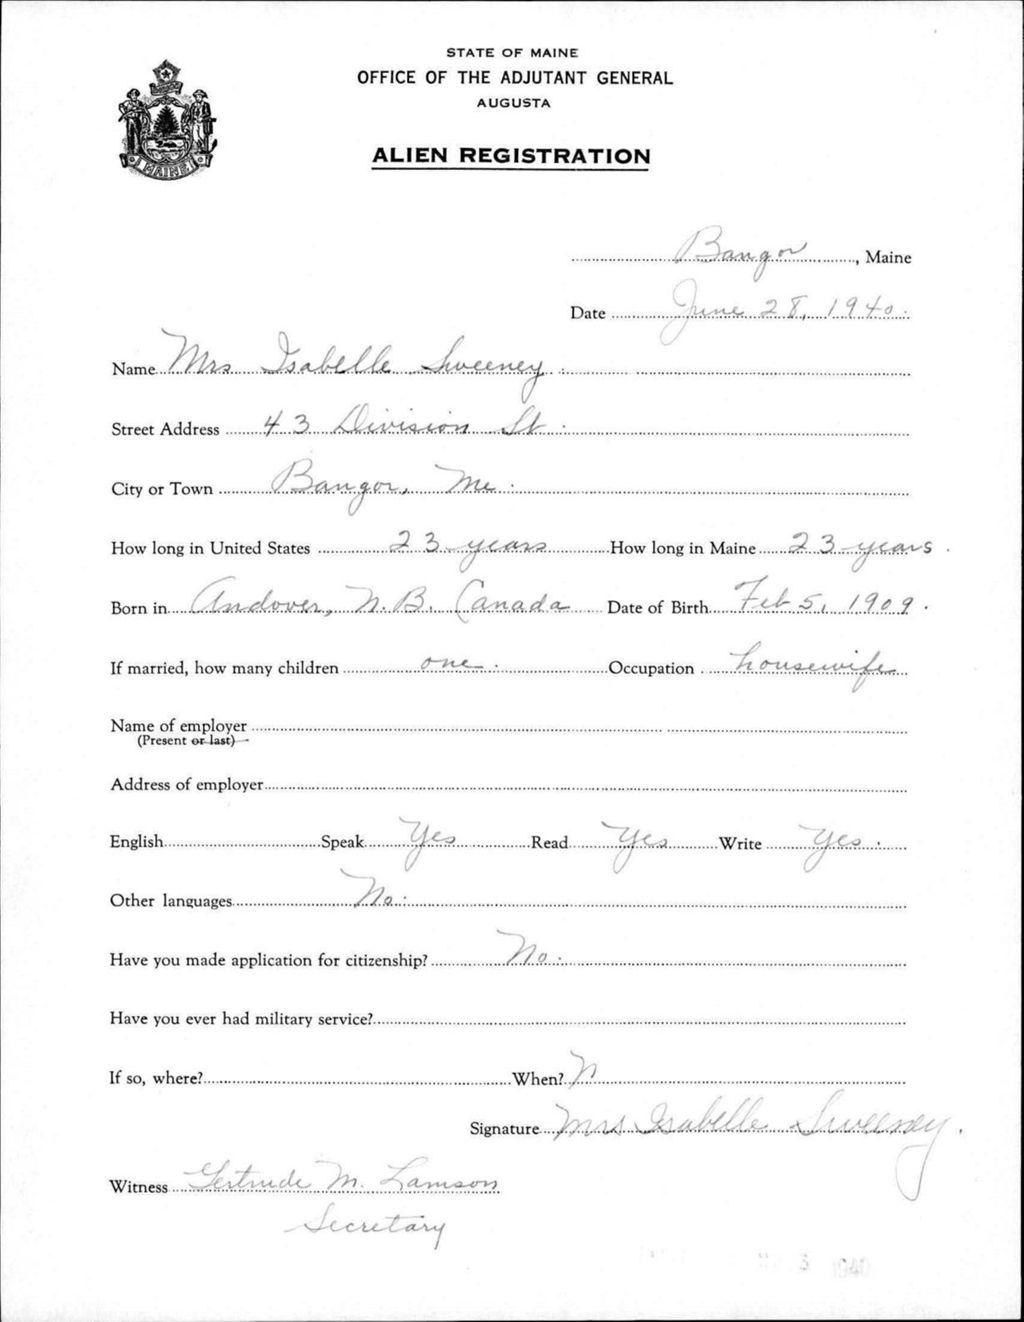 STATE OF MAINE
OFFICE OF THE ADJUTANT GENERAL
AUGUSTA
MAINE
ALIEN REGISTRATION
Bangor, Maine
Date June 28, 1940.
Name Mrs Isabelle Sweeney.
Street Address 43 Division St.
City or Town Bangor, Me.
How long in United States 23 years How long in Maine 23 years.
Born in Andover, N.B. Canada Date of Birth Feb 5, 1909.
If married, how many children one. Occupation housewife
Name of employer
(Present or last)
Address of employer
English Speak Yes Read Yes Write Yes.
Other languages No.
Have you made application for citizenship? No.
Have you ever had military service?
If so, where? When? N
Signature Mrs Isabelle Sweeney.
Witness Gertrude M. Lamson
Secretary
1940